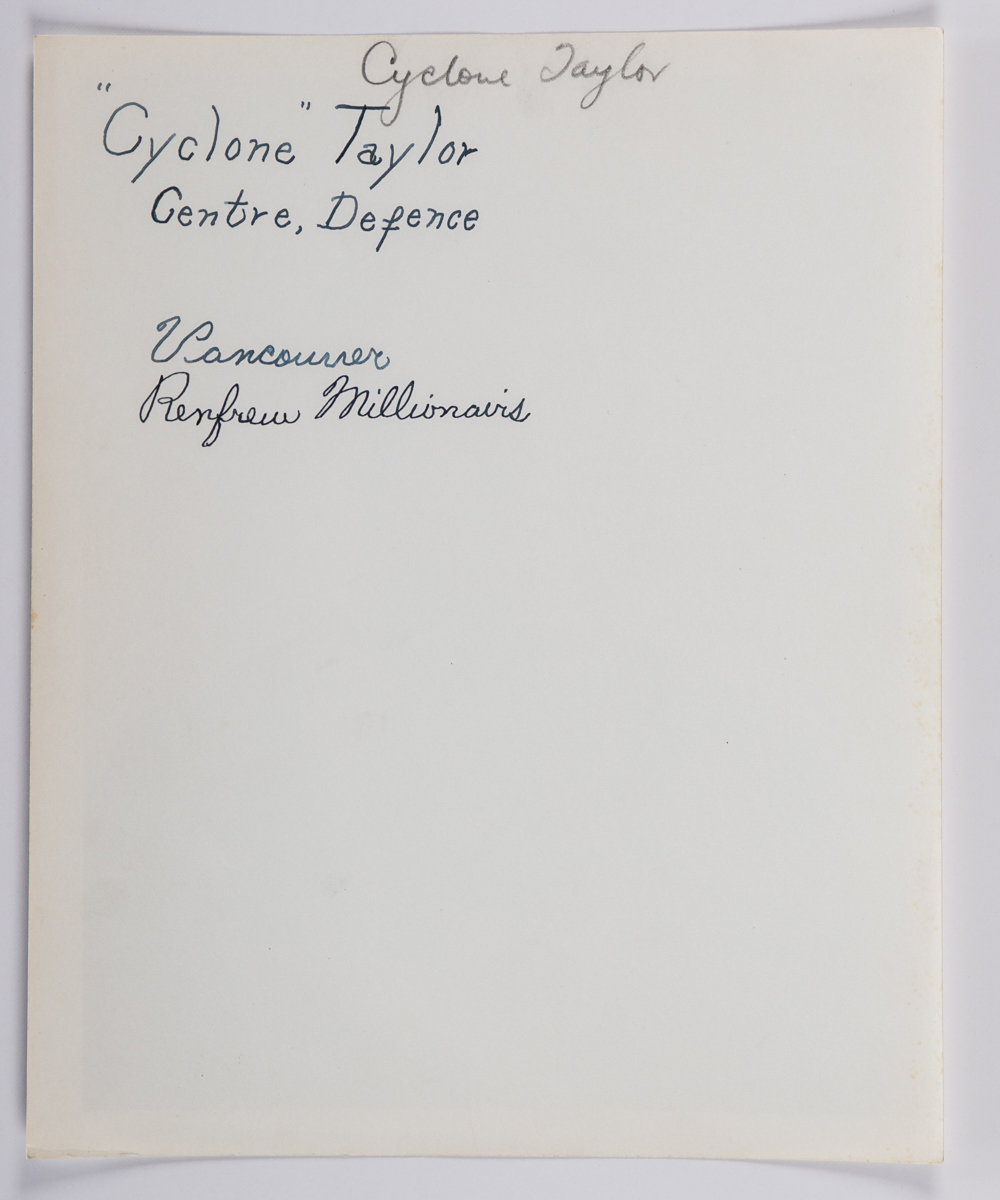 Cyclone Taylor
"Cyclone" Taylor
Centre, Defence
Vancouver
Renfrew Millionairs